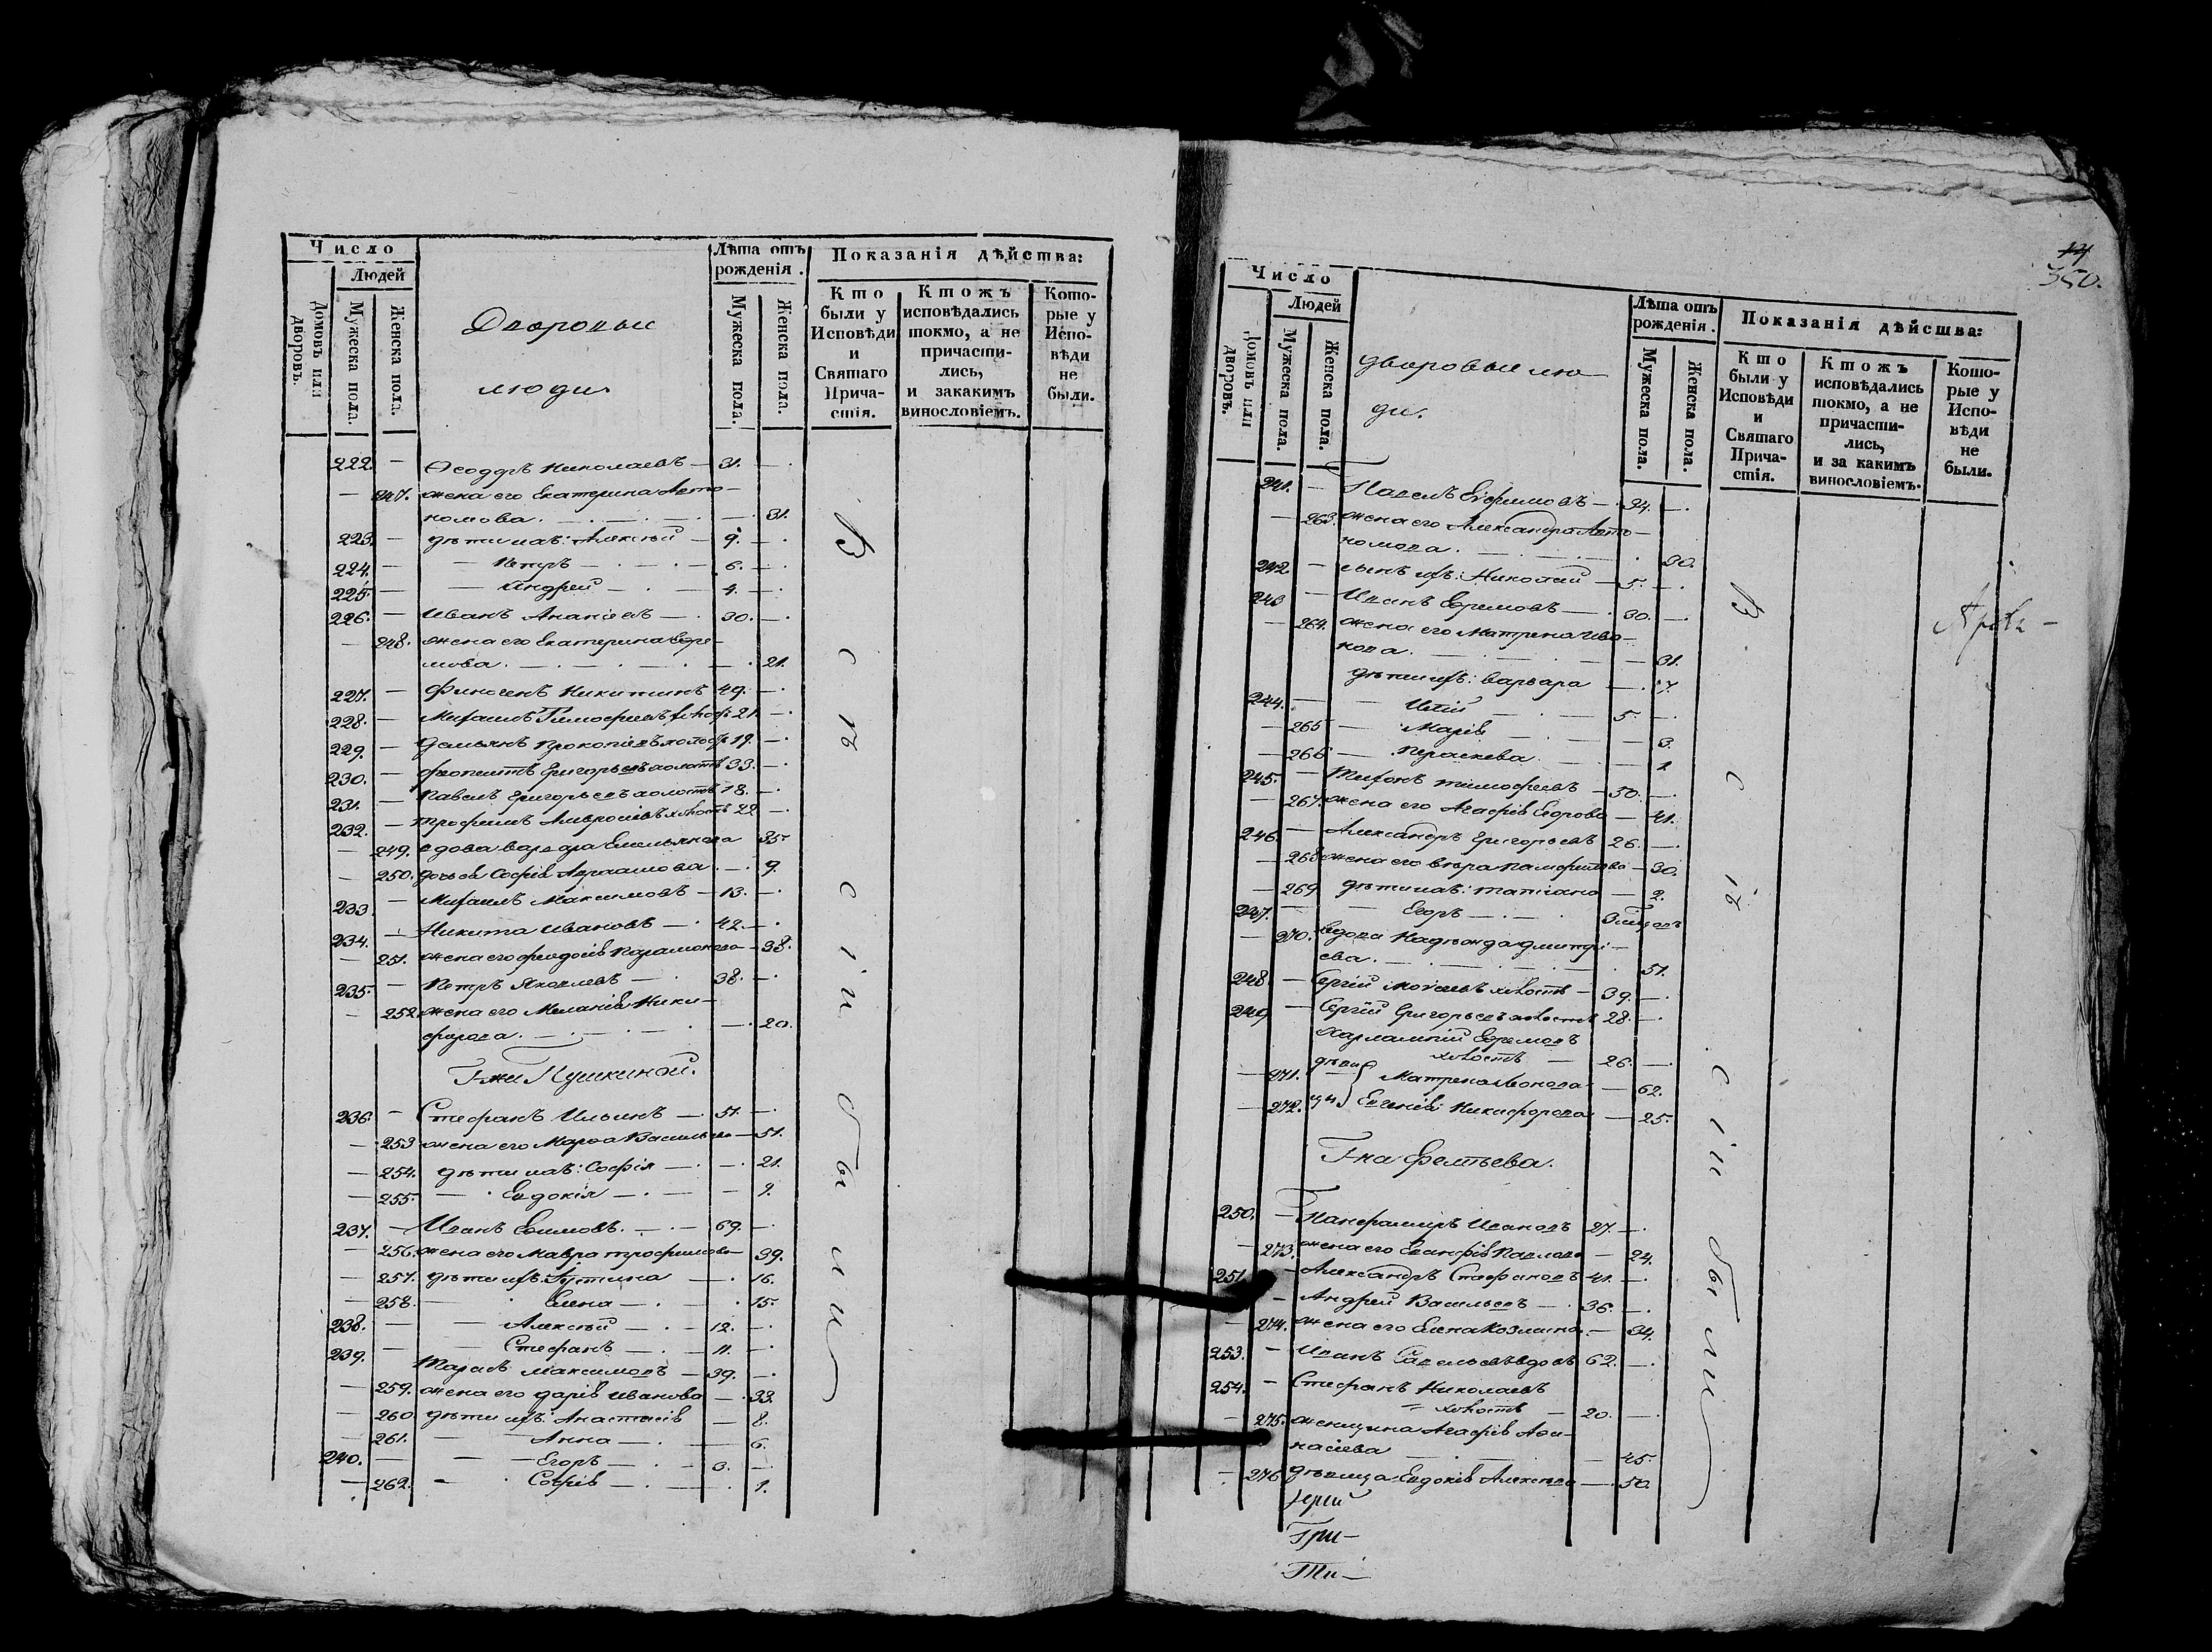 Число
Людей
Домовъ или дворовъ.
Мужеска пола.
Женска пола.
Дворовыи
люди
Лѣта отъ рожденія.
Мужеска пола.
Женска пола.
Показанія дѣйства:
Кто были у Исповѣди и Святаго Причастія.
Ктожъ исповѣдались токмо, а не причастились, и закакимъ винословіемъ.
Которые у Исповѣди не были.
222. — Ѳеодоръ Николаевъ — 31. —
— 247. жена его Екатерина Авто-
номова. — — 31.
223. — дѣти ихъ: Алексѣй — 9. —
224. — — Петръ — 6. —
225. — — Андрей — 4. —
226. — Иванъ Ананіевъ — 30. —
— 248. жена его Екатерина Ефре-
мова. — — 21.
227. — Финогенъ Никитинъ 49. —
228. — Михаилъ Тимофеевъ 21. —
229. — Демьянъ Прокопіевъ 19. —
230. — Григорьевъ холостъ 33. —
231. — Павелъ Григорьевъ холостъ 18. —
232. — Трофимъ Амвросіевъ холостъ 22 —
— 249. вдова Варвара Емельянова 35.
— 250. дочь ея Софія Авраамова — 9.
233. — Михаилъ Максимовъ — 13. —
234. — Никита Ивановъ — 42. —
— 251. жена его Феодосія Парамонова — 38.
235. — Петръ Яковлевъ — 38. —
— 252. жена его Меланія Ники-
форова. — — 20.
Г-жи Пушкиной.
236. — Стефанъ Ильинъ — 51. —
— 253 жена его Марѳа Васильева — 51.
— 254. дѣти ихъ: Софія — 21.
— 255. — Евдокія — 9.
237. — Иванъ Ефимовъ. — 69. —
— 256. жена его Мавра Трофимова — 39.
— 257. дѣти ихъ: — 16.
— 258. — Елена — 15.
238. — — Алексѣй — 12. —
239. — — Стефанъ — 11. —
Тарасъ Максимовъ — 39. —
— 259. жена его Дарія Иванова — 33.
— 260. дѣти ихъ: Анастасія — 8.
— 261. — Анна — 6.
240. — — Егоръ — 3. —
— 262. — Софія — 1.
всѣ сіи были
350.
Число
Людей
Домовъ или дворовъ.
Мужеска пола.
Женска пола.
дворовыи лю
ди.
Лѣта отъ рожденія.
Мужеска пола.
Женска пола.
Показанія дѣйства:
Кто были у Исповѣди и Святаго Причастія.
Ктожъ исповѣдались токмо, а не причастились, и за какимъ винословіемъ.
Которые у Исповѣди не были.
241. — Павелъ Ефимовъ — 34. —
— 263. жена его Александра Авто-
номова. — 30.
242. — сынъ ихъ: Николай — 5. —
243 — Иванъ Ефремовъ — 30. —
— 264. жена его Матрена Ива-
нова. — — 31.
дѣти ихъ: Варвара — 7.
244. — — 5. —
— 265 — Марія — 3.
— 266 — Параскева — 1
245. — Тихонъ Тимофеевъ — 50. —
— 267. жена его Агафія Егорова — 41.
246. — Александръ Григорьевъ 26. —
— 268 жена его Вѣра Памфилова — 30.
— 269. дѣти ихъ: Татіана — 2.
247. — — Егоръ —
— 270. вдова Надежда Дмитрі-
ева. — 51.
248. — Сергій Моисеевъ холостъ — 39. —
249 — Сергій Григорьевъ холостъ 28. —
Харлампій Ефремовъ
холостъ — 26. —
— 271. дѣви Матрена — 62.
— 272. цы Евгенія Никифорова — 25.
Г-на
250. — Иванов 27. —
— 273. жена его Павлова — 24.
251. — Александръ Стефановъ 41. —
— Андрей Васильевъ — 36. —
— 274. жена его Елена Козмина — 34.
253. — Иванъ Савельевъ вдовъ 62. —
254. — Стефанъ Николаевъ
холостъ — 20. —
— 275. женщина Агафія Аѳа-
насіева — 45.
— 276 дѣвица Евдокія Алексѣева — 50.
всѣ сіи были
Іерей
Гри-
Ти-